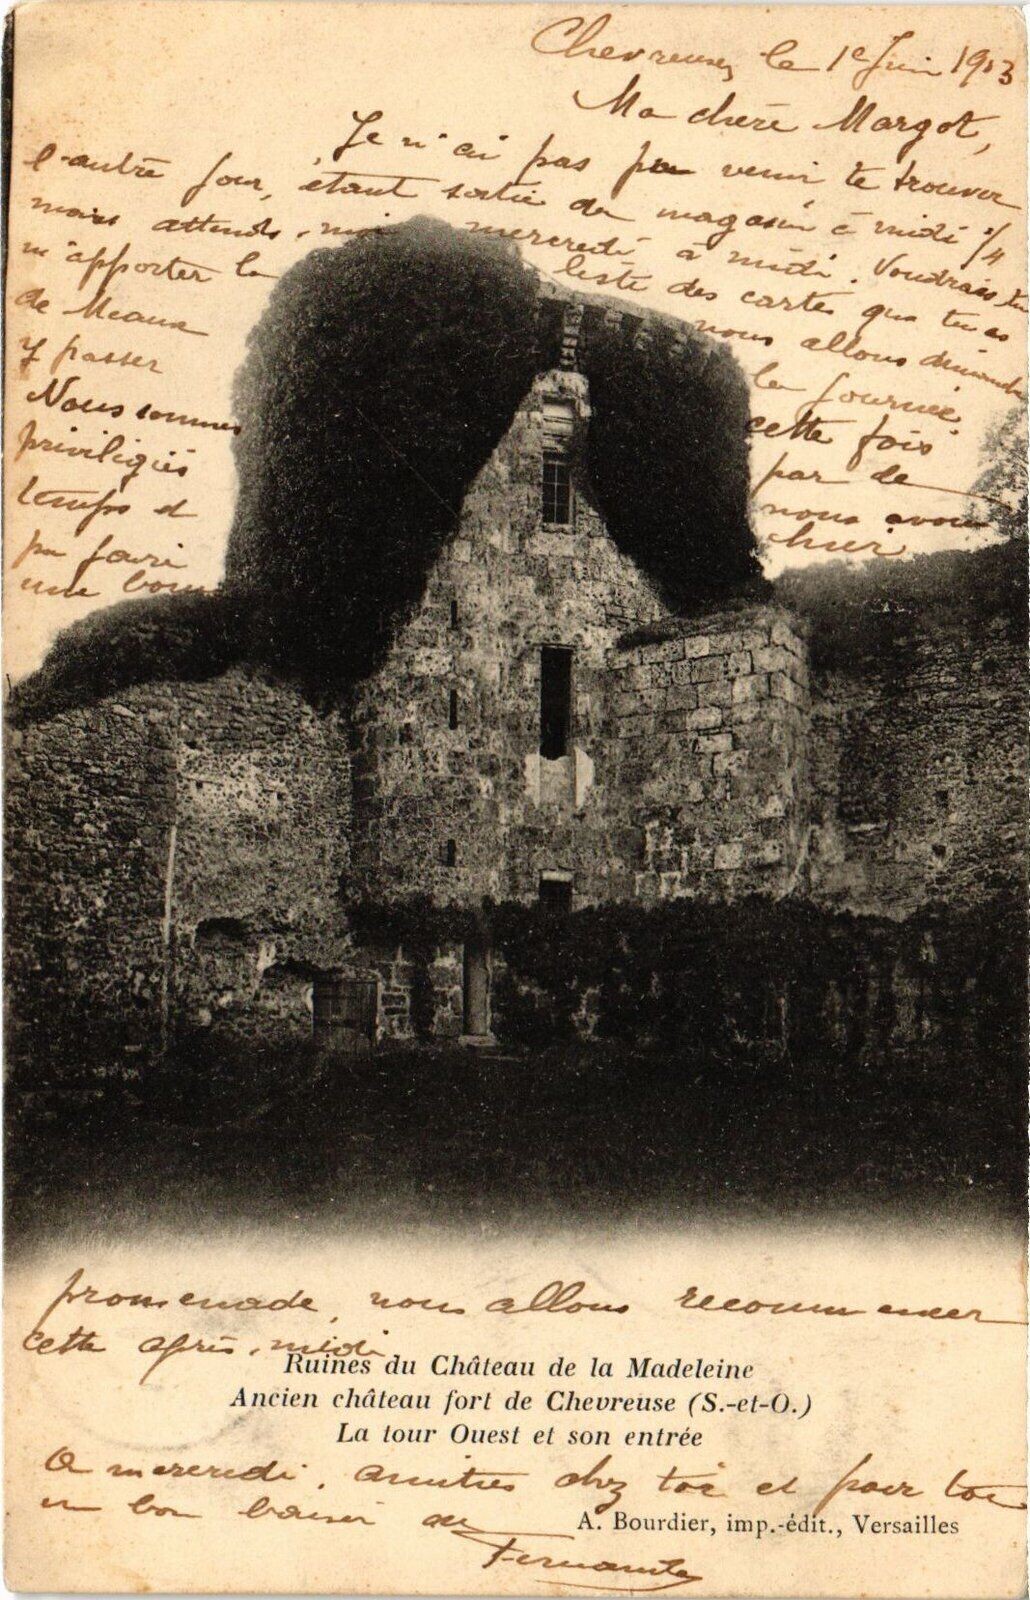 Chevreuse, le 1e Juin 1903
Ma chère Margot,
Je n'ai pas pu venir te trouver
l'autre jour, étant sortie du magasin à midi 1/4
mais attends-moi mercredi à midi. Voudrais-tu
m'apporter la liste des cartes que tu as
de Meaux nous allons dimanche
y passer la journée.
Nous sommes cette fois
priviligiés par le
temps et nous avons
pu faire hier
une bonne
promenade, nous allons recommencer
cette après-midi
Ruines du Château de la Madeleine
Ancien château fort de Chevreuse (S.-et-O.)
La tour Ouest et son entrée
A mercredi, amitiés chez toi et pour toi
un bon baiser de
A. Bourdier, imp.-édit., Versailles
Fernande